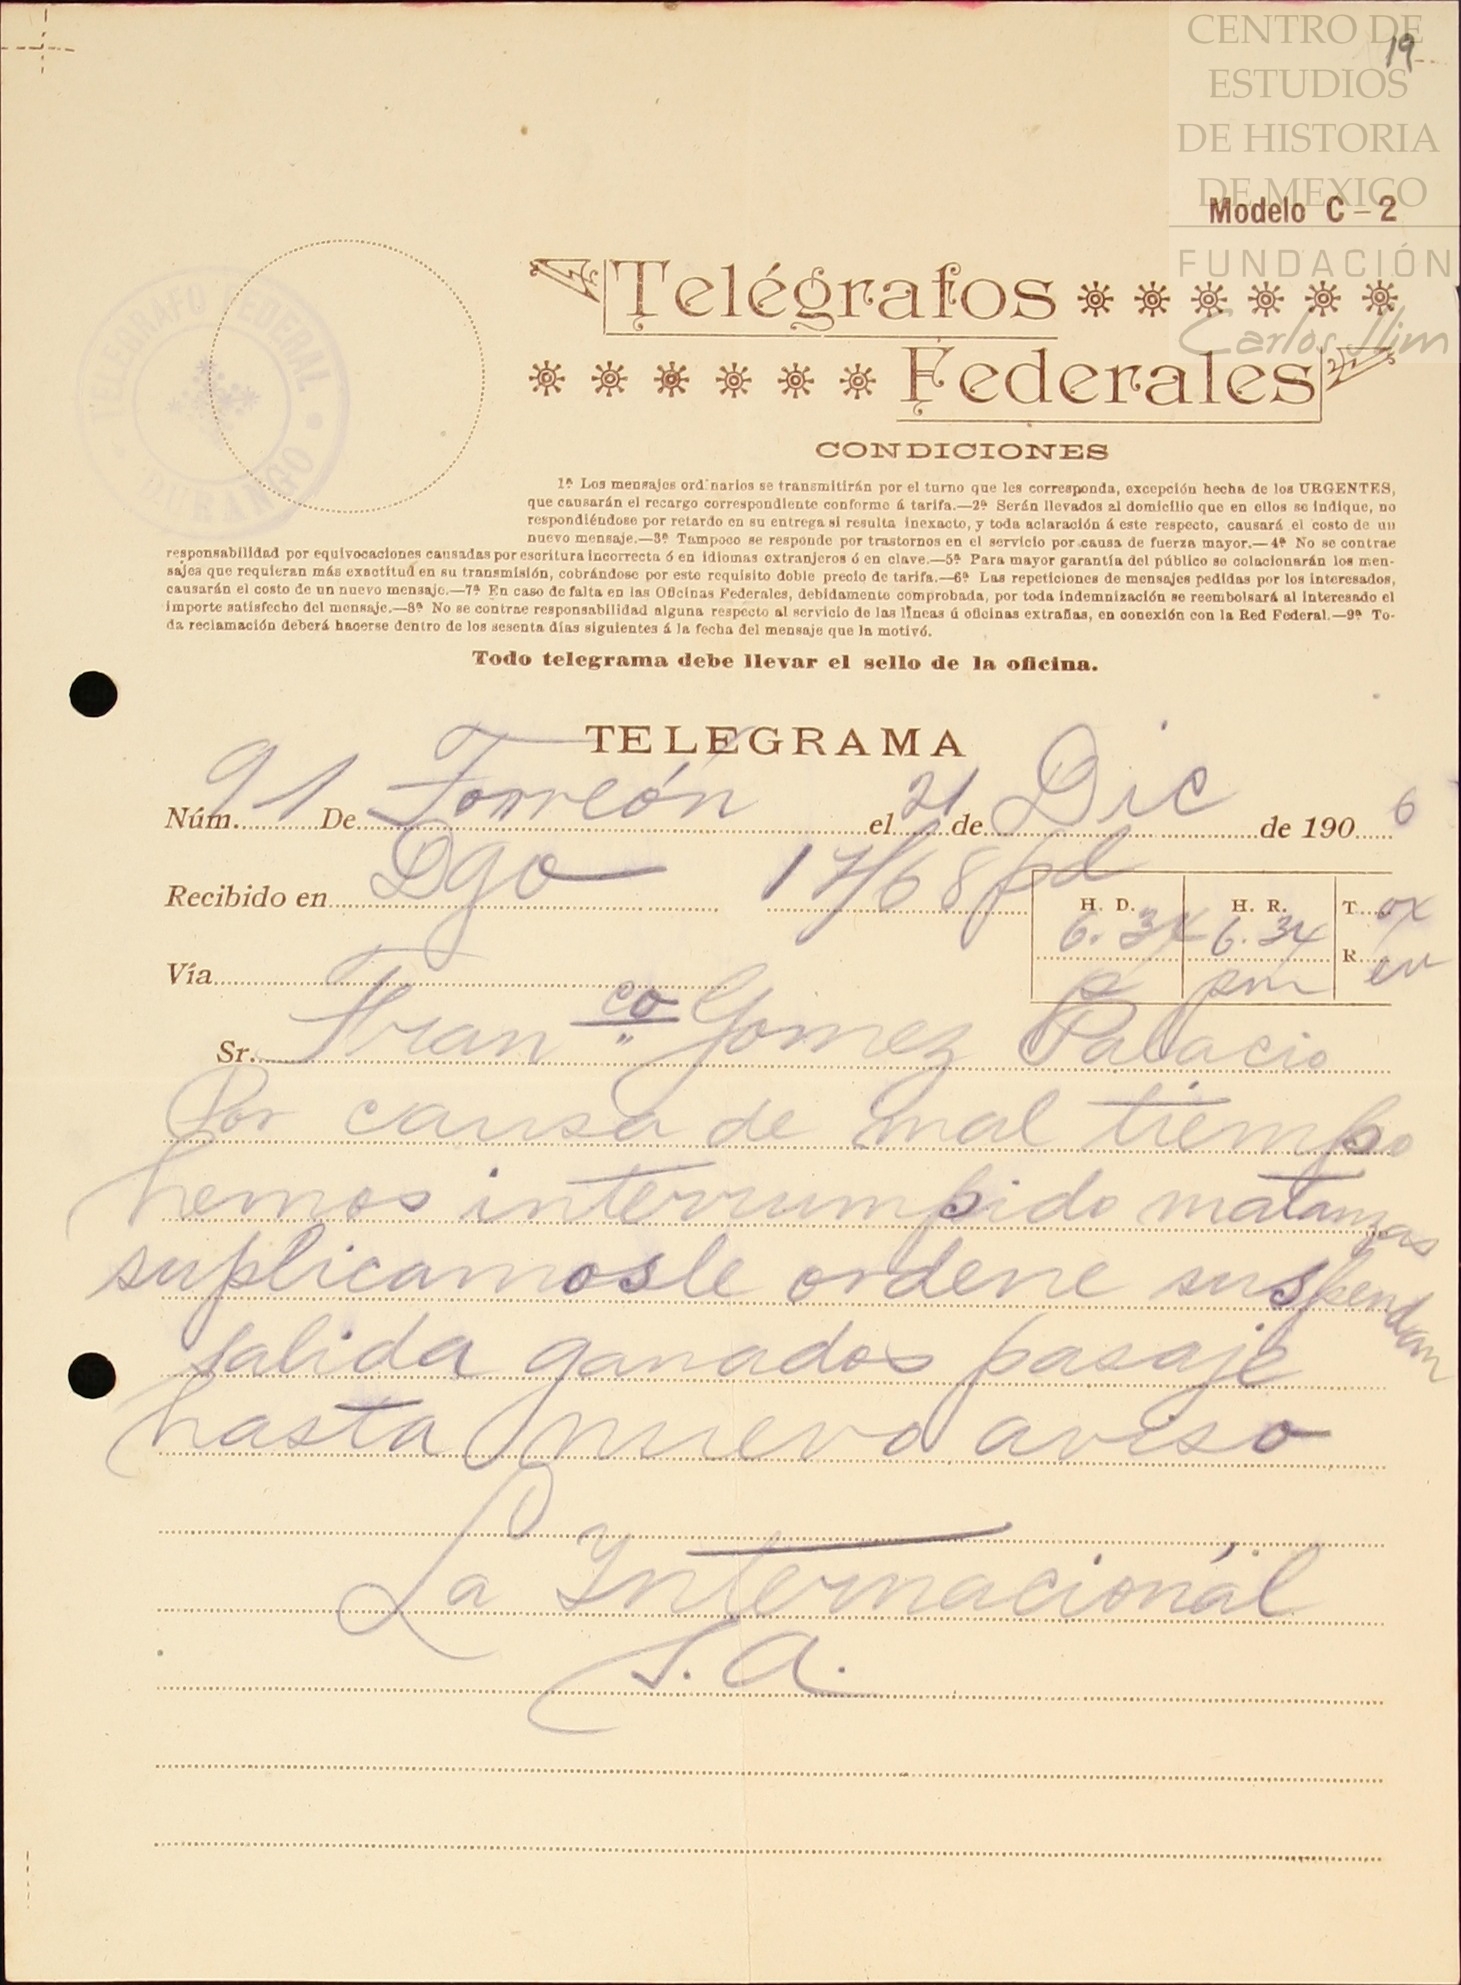 CENTRO DE
ESTUDIOS
DE HISTORIA
DE MEXICO
19
Modelo C-2
FUNDACIÓN
Carlos Slim
TELEGRAFO FEDERAL
DURANGO
Telégrafos
Federales
CONDICIONES
1ª Los mensajes ordinarios se transmitirán por el turno que les corresponda, excepción hecha de los URGENTES,
que causarán el recargo correspondiente conforme á tarifa.—2ª Serán llevados al domicilio que en ellos se indique, no
respondiéndose por retardo en su entrega si resulta inexacto, y toda aclaración á este respecto, causará el costo de un
nuevo mensaje.—3ª Tampoco se responde por trastornos en el servicio por causa de fuerza mayor.—4ª No se contrae
responsabilidad por equivocaciones causadas por escritura incorrecta ó en idiomas extranjeros ó en clave.—5ª Para mayor garantía del público se colacionarán los men-
sajes que requieran más exactitud en su transmisión, cobrándose por este requisito doble precio de tarifa.—6ª Las repeticiones de mensajes pedidas por los interesados,
causarán el costo de un nuevo mensaje.—7ª En caso de falta en las Oficinas Federales, debidamente comprobada, por toda indemnización se reembolsará al interesado el
importe satisfecho del mensaje.—8ª No se contrae responsabilidad alguna respecto al servicio de las líneas ú oficinas extrañas, en conexión con la Red Federal.—9ª To-
da reclamación deberá hacerse dentro de los sesenta días siguientes á la fecha del mensaje que la motivó.
Todo telegrama debe llevar el sello de la oficina.
TELEGRAMA
Núm. 91 De Torreón el 21 de Dic de 1906
Recibido en Dgo 17/68 pd
H. D. H. R. T. ox
6.34 6.34 R
p pm
Vía
Sr. Franco Gómez Palacio
Por causa de mal tiempo
hemos interrumpido matanzas
suplicamosle ordene suspendan
salida ganados pasaje
hasta nuevo aviso
La Internacionál
S.A.